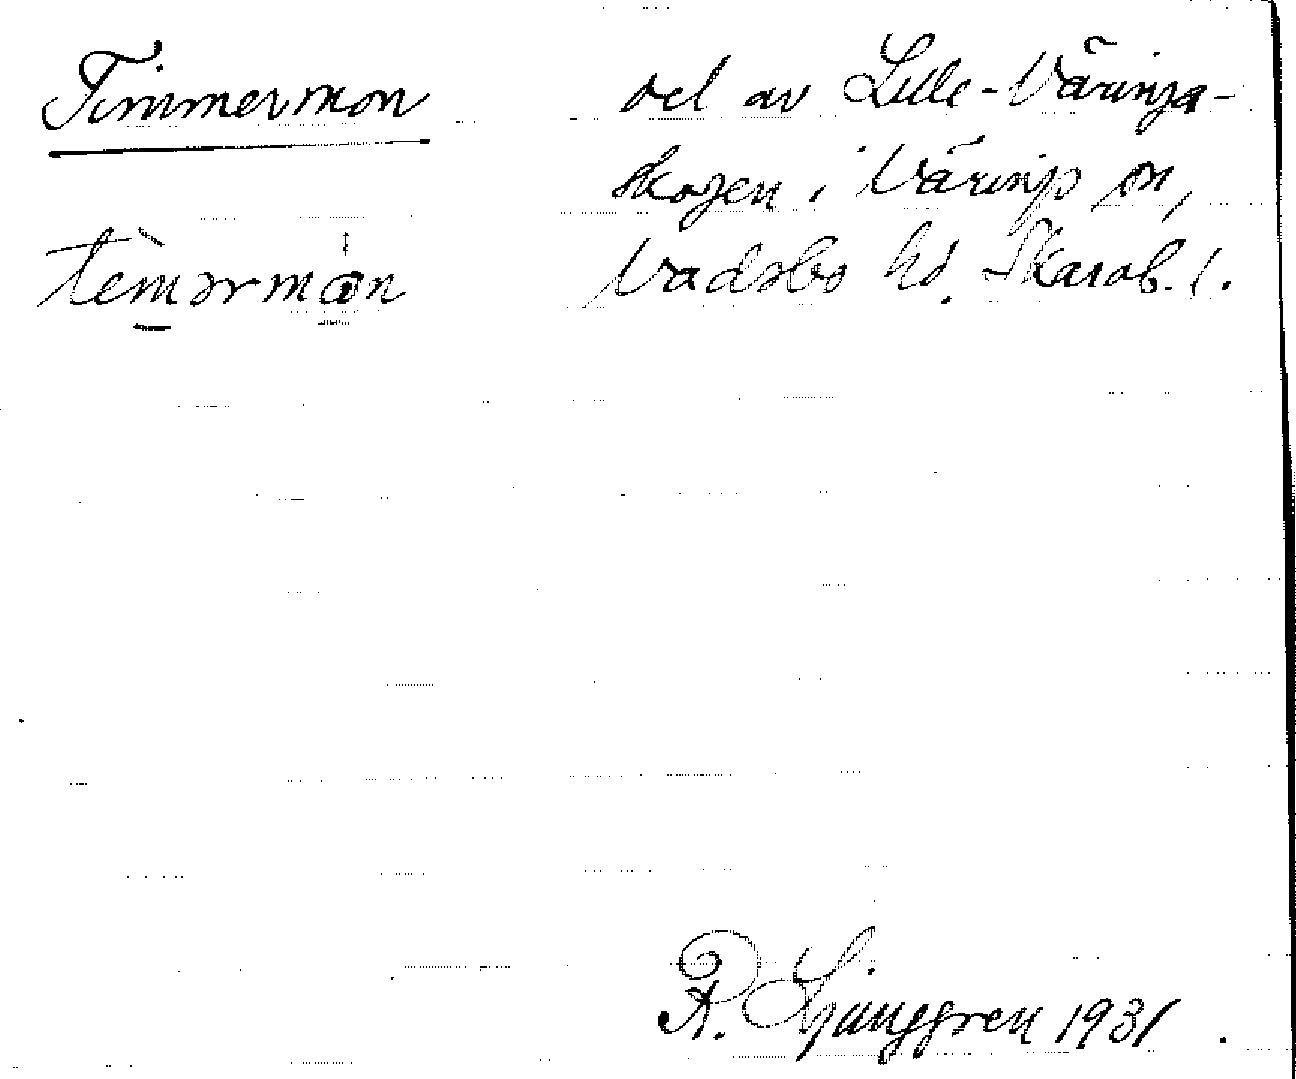 Timmermon
tèmərmön
del av Lille-Väringa-
skogen i Värings sn,
Vadsbo hd. Skarab. l.
R. Ljunggren 1931